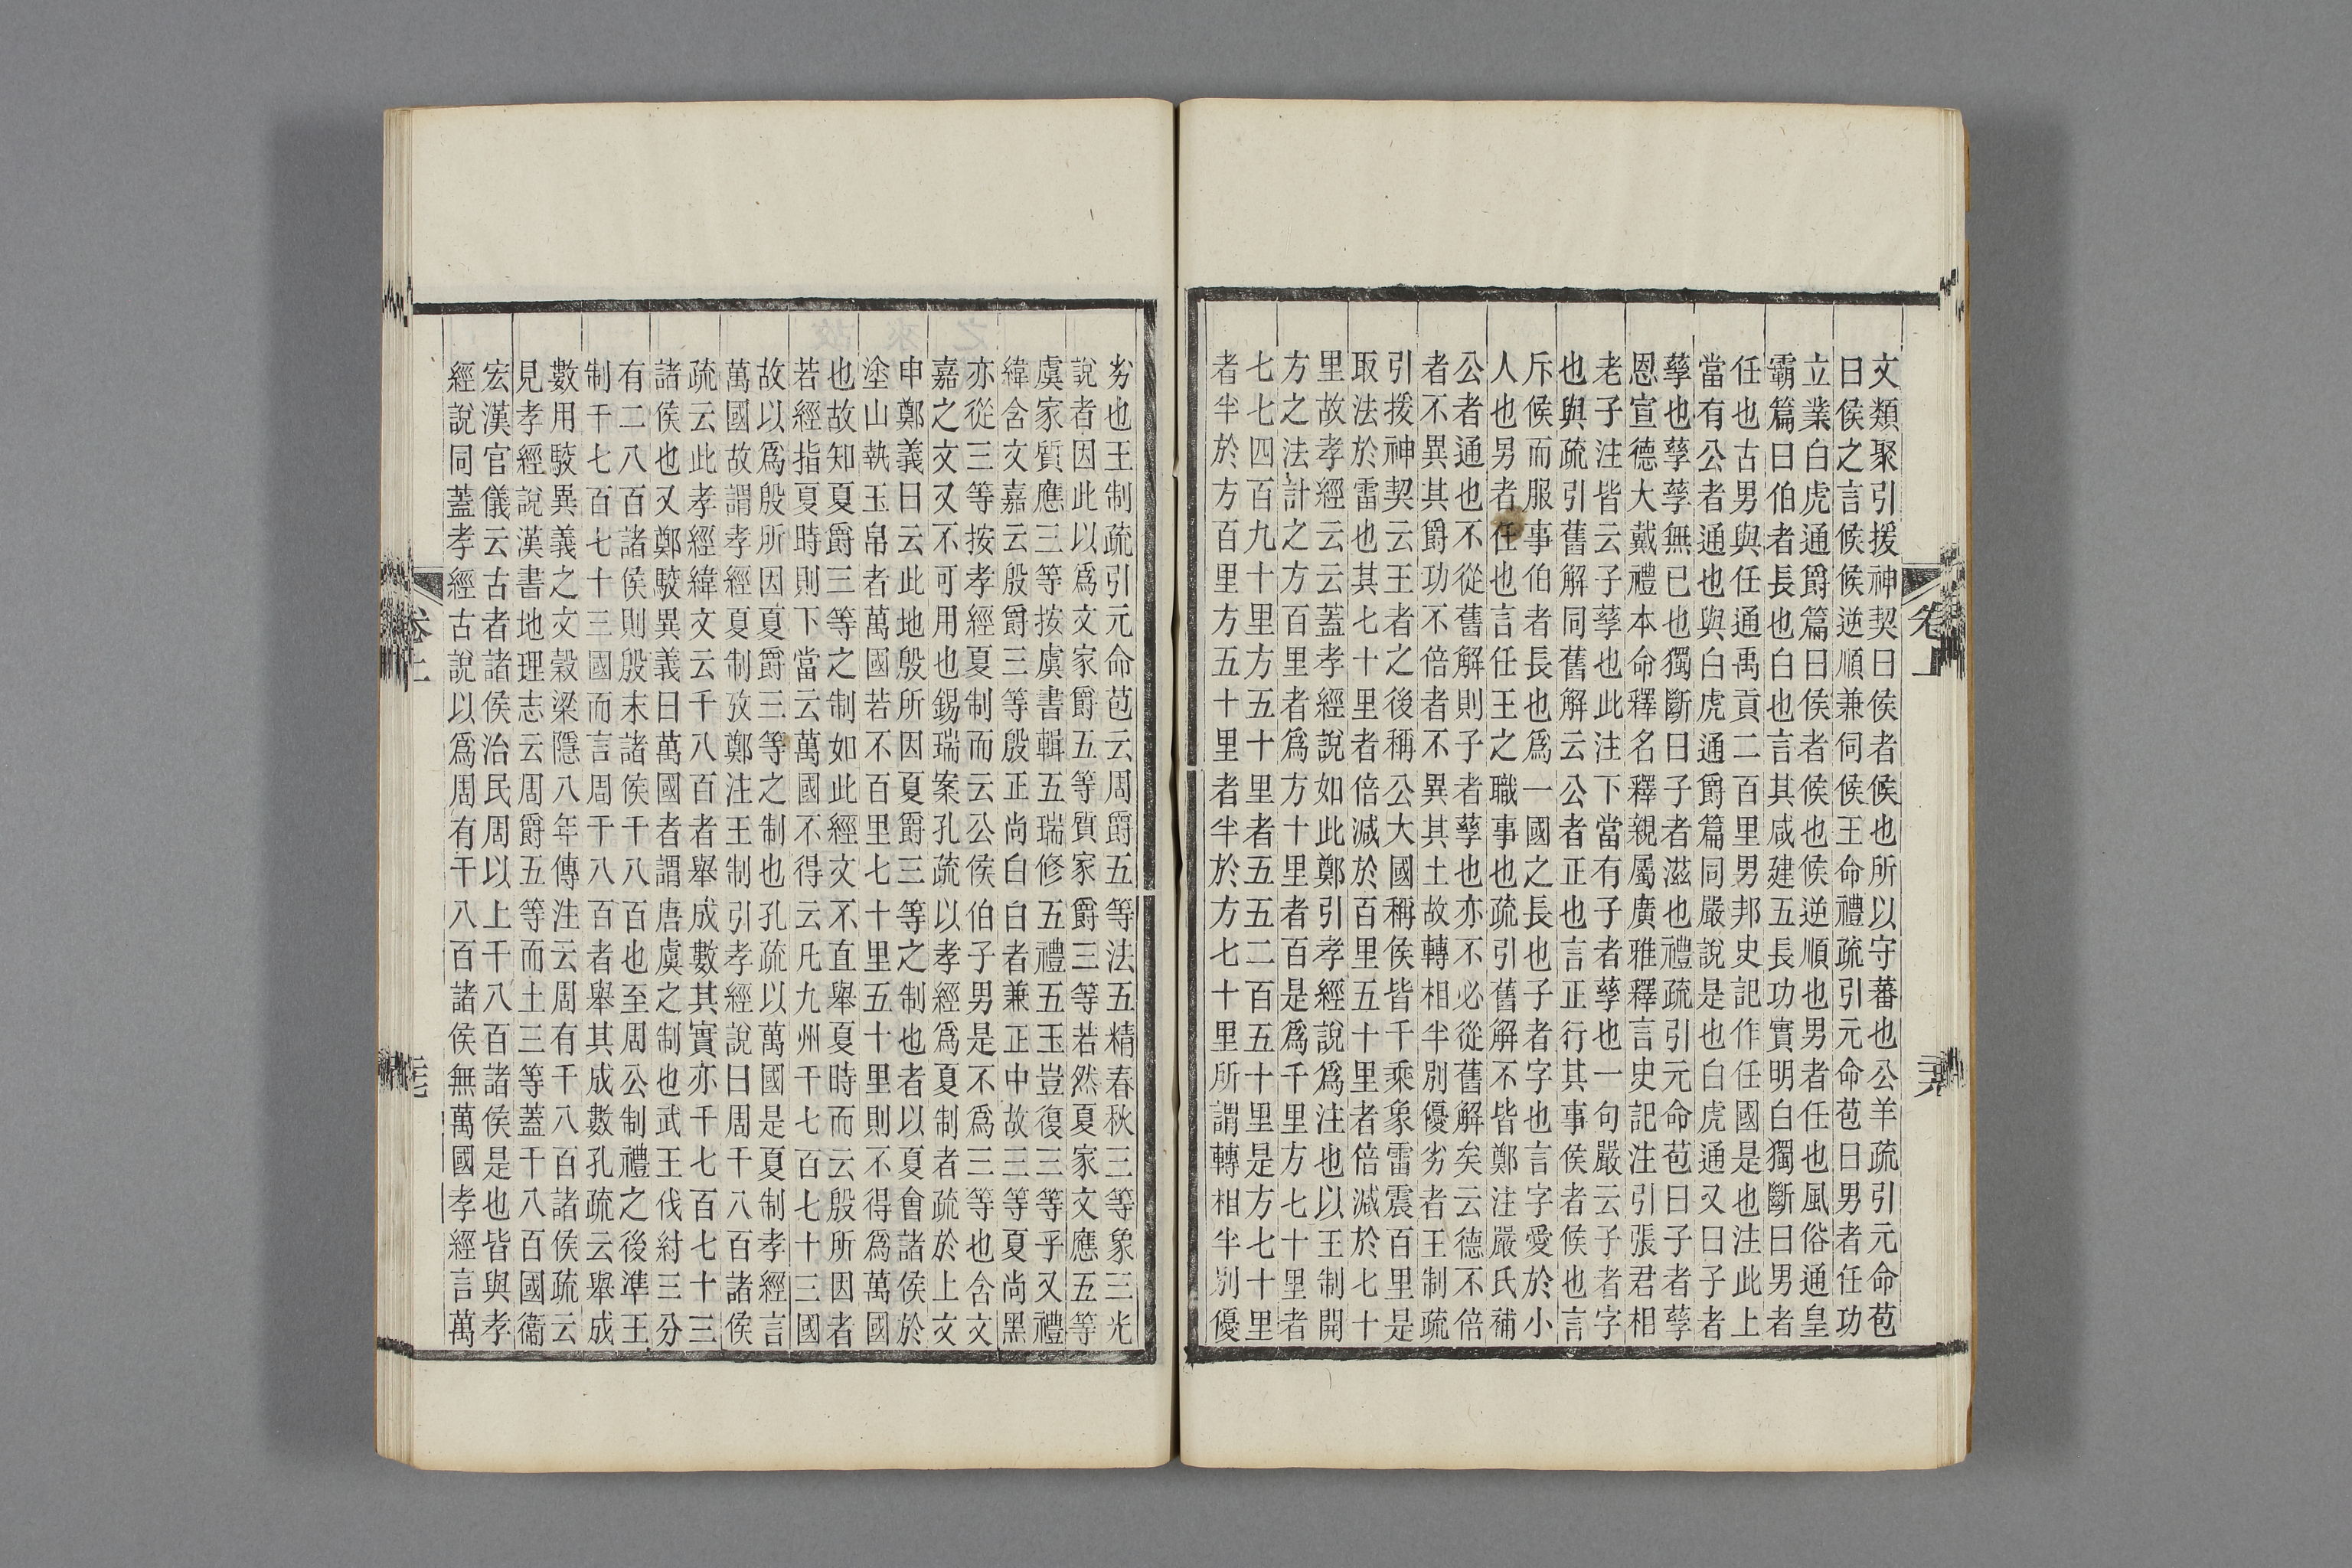 文類聚引援神契曰侯者候也所以守蕃也公羊疏引元命苞
曰侯之言候候逆順兼伺候王命禮疏引元命苞曰男者任功
立業白虎通爵篇曰侯者候也候逆順也男者任也風俗通皇
霸篇曰伯者長也白也言其咸建五長功實明白獨斷曰男者
任也古男與任通禹貢二百里男邦史記作任國是也注此上
當有公者通也與白虎通爵篇同嚴說是也白虎通又曰子者
孳也孳孳無已也獨斷曰子者滋也禮疏引元命苞曰子者孳
恩宣德大戴禮本命釋名釋親屬廣雅釋言史記注引張君相
老子注皆云子孳也此注下當有子者孳也一句嚴云子者字
也與疏引舊解同舊解云公者正也言正行其事侯者候也言
斥候而服事伯者長也爲一國之長也子者字也言字愛於小
人也男者任也言任王之職事也疏引舊解不皆鄭注嚴氏補
公者通也不從舊解則子者孳也亦不必從舊解矣云德不倍
者不異其爵功不倍者不異其土故轉相半別優劣者王制疏
引援神契云王者之後稱公大國稱侯皆千乘象雷震百里是
取法於雷也其七十里者倍減於百里五十里者倍減於七十
里故孝經云云蓋孝經說如此鄭引孝經說爲注也以王制開
方之法計之方百里者爲方十里者百是爲千里方七十里者
七七四百九十里方五十里者五五二百五十里是方七十里
者半於方百里方五十里者半於方七十里所謂轉相半別優
卷上
三六
劣也王制疏引元命苞云周爵五等法五精春秋三等象三光
說者因此以爲文家爵五等質家爵三等若然夏家文應五等
虞家質應三等按虞書輯五瑞修五禮五玉豈復三等乎又禮
緯含文嘉云殷爵三等殷正尚白白者兼正中故三等夏尚黑
亦從三等按孝經夏制而云公侯伯子男是不爲三等也含文
嘉之文又不可用也錫瑞案孔疏以孝經爲夏制者疏於上文
申鄭義曰云此地殷所因夏爵三等之制也者以夏會諸侯於
塗山執玉帛者萬國若不百里七十里五十里則不得爲萬國
也故知夏爵三等之制如此經文不直舉夏時而云殷所因者
若經指夏時則下當云萬國不得云凡九州千七百七十三國
故以爲殷所因夏爵三等之制也孔疏以萬國是夏制孝經言
萬國故謂孝經夏制攷鄭注王制引孝經說曰周千八百諸侯
疏云此孝經緯文云千八百者舉成數其實亦千七百七十三
諸侯也又鄭駮異義曰萬國者謂唐虞之制也武王伐紂三分
有二八百諸侯則殷末諸侯千八百也至周公制禮之後準王
制千七百七十三國而言周千八百者舉其成數孔疏云舉成
數用駮異義之文穀梁隱八年傳注云周有千八百諸侯疏云
見孝經說漢書地理志云周爵五等而土三等蓋千八百國衞
宏漢官儀云古者諸侯治民周以上千八百諸侯是也皆與孝
經說同蓋孝經古說以爲周有千八百諸侯無萬國孝經言萬
卷上
三七